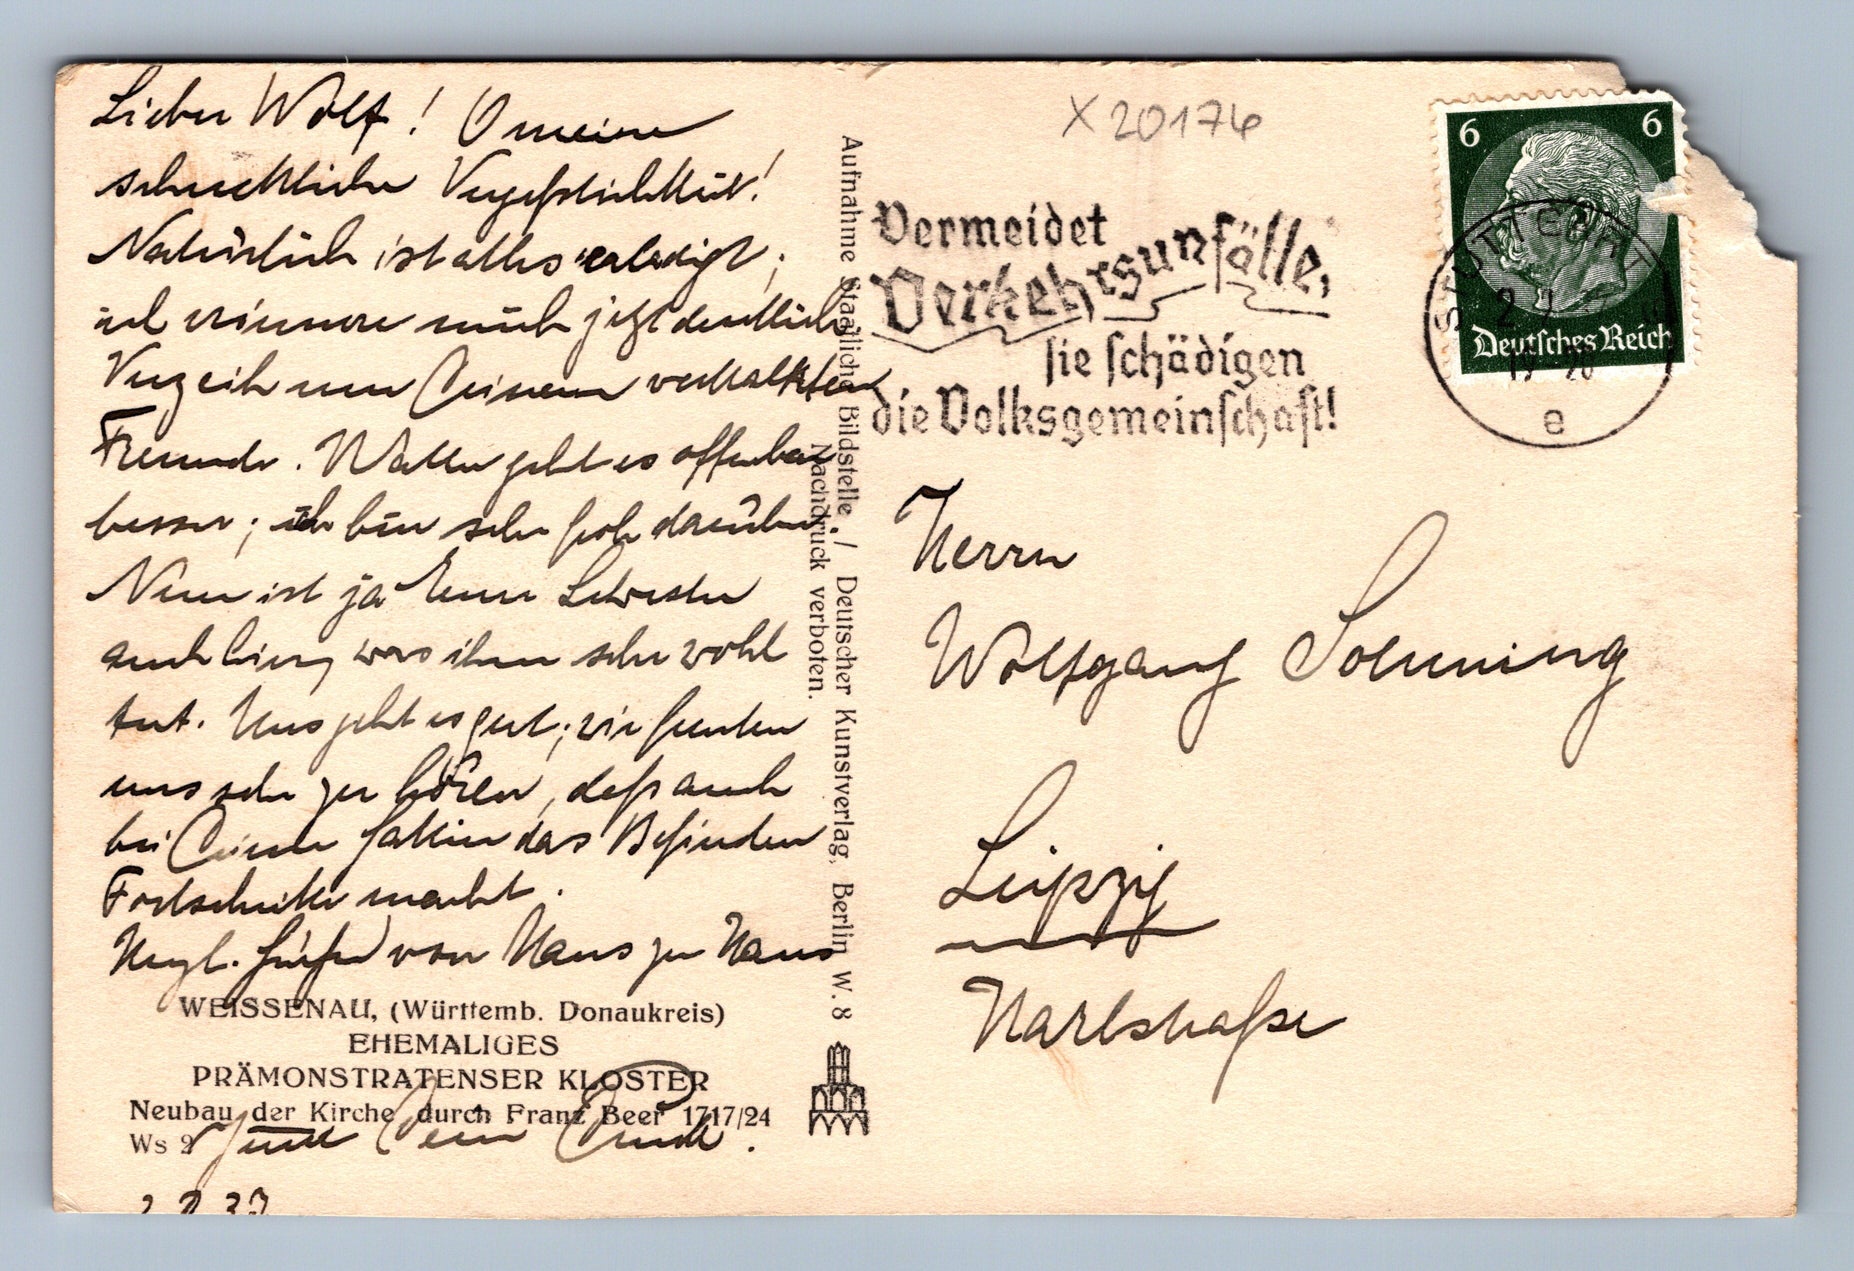 Lieber Wolf! O meine
schreckliche Vergesslichkeit!
Natürlich ist alles erledigt;
ich erinnere mich jetzt deutlich
Verzeih nur Deinem verkalkten
Freunde. Walter geht es offenbar
besser; ich bin sehr froh darüber.
Nun ist ja Eure Schwester
auch hier, was ihm sehr wohl
tut. Uns geht es gut; wir freuten
uns sehr zu hören, daß auch
bei Deiner Gattin das Befinden
Fortschritte macht.
Herzl. Grüße von Haus zu Haus
WEISSENAU, (Württemb. Donaukreis)
EHEMALIGES
PRÄMONSTRATENSER KLOSTER
Neubau der Kirche durch Franz Beer 1717/24
Ws 9
Dein
Aufnahme Staatliche Bildstelle / Deutscher Kunstverlag, Berlin W. 8
Nachdruck verboten.
X 20174
Vermeidet
Verkehrsunfälle,
sie schädigen
die Volksgemeinschaft!
6 6
Deutsches Reich
STUTTGART
e
Herrn
Wolfgang
Leipzig
Karlstraße